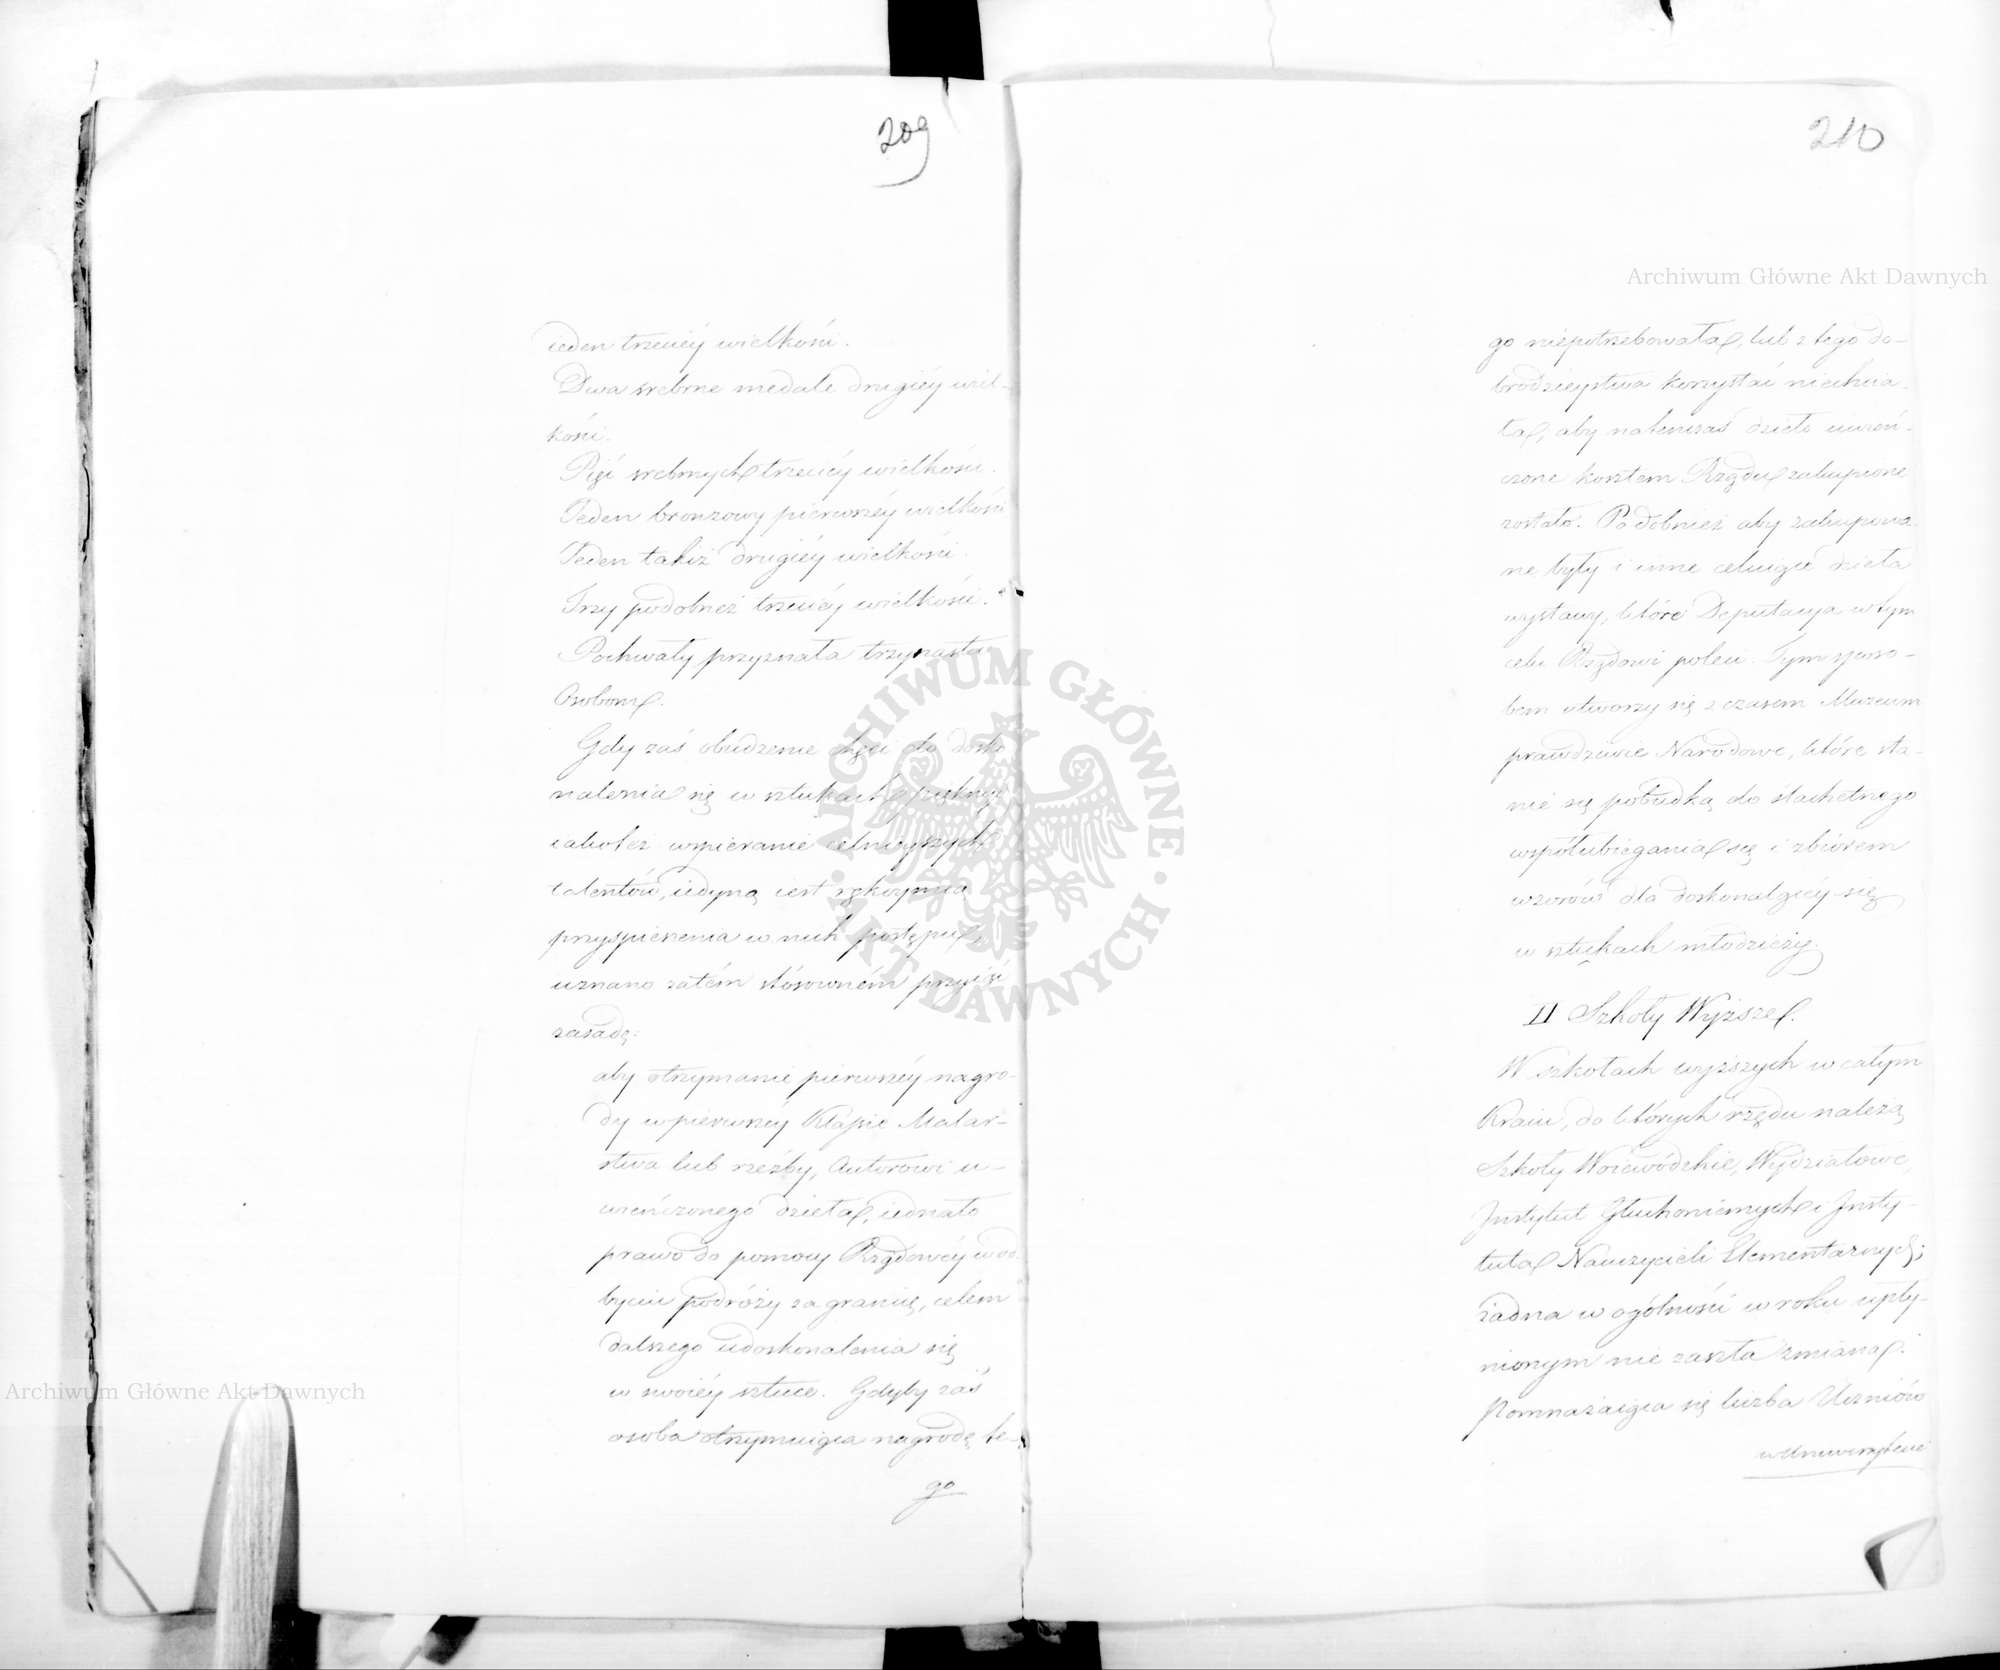 209
ieden trzeciéy wielkości.
Dwa srebrne medale drugiéy wiel-
kości.
Pięć srebrnych trzeciéy wielkości.
Jeden bronzowy pierwszéy wielkości
Jeden takiż drugiéy wielkości.
Trzy podobnéż trzeciéy wielkości.
Pochwały przyznała trzynastu
Osobom.
Gdy zaś obudzenie chęci do dosko
nalenia się w sztukach pięknych
iakoteż wspieranie celnieyszych
talentów, iedyną iest rękoymią
przyspieszenia w nich postępu,
uznano zatém stósowném przyiąć
zasadę:
aby otrzymanie pierwszéy nagro-
dy w pierwszéy Klassie Malar-
stwa lub rzeźby, Autorowi u-
wieńczonego dzieła, iednało
prawo do pomocy Rządowéy w od
byciu podróży za granicę, celem
dalszego udoskonalenia się
w swoiéy sztuce. Gdyby zaś
osoba otrzymuiąca nagrodę te-
go
210
go niepotrzebowała, lub z tego do-
brodzieystwa korzystać niechcia-
ła, aby natenczas dzieło uwień-
czone kosztem Rządu zakupione
zostało. Podobnież aby zakupowa
ne były i inne celuiące dzieła
wystawy, które Deputacya w tym
celu Rządowi poleci. Tym sposo-
bem utworzy się z czasem Muzeum
prawdziwie Narodowe, które sta-
nie się pobudką do ślachetnego
współubiegania się i zbiorem
wzorów dla doskonalącéy się
w sztukach młodzieży.
II Szkoły Wyższe.
W szkołach wyższych w całym
Kraiu, do których rzędu należą
Szkoły Woiewódzkie, Wydziałowe,
Instytut Głuchoniemych i Insty-
tuta Nauczycieli Elementarnych;
żadna w ogólności w roku upły-
nionym nie zaszła zmiana.
Pomnażaiąca się liczba Uczniów
w Uniwersytecie
Archiwum Główne Akt Dawnych
Archiwum Główne Akt Dawnych
ARCHIWUM GŁÓWNE · AKT DAWNYCH ·